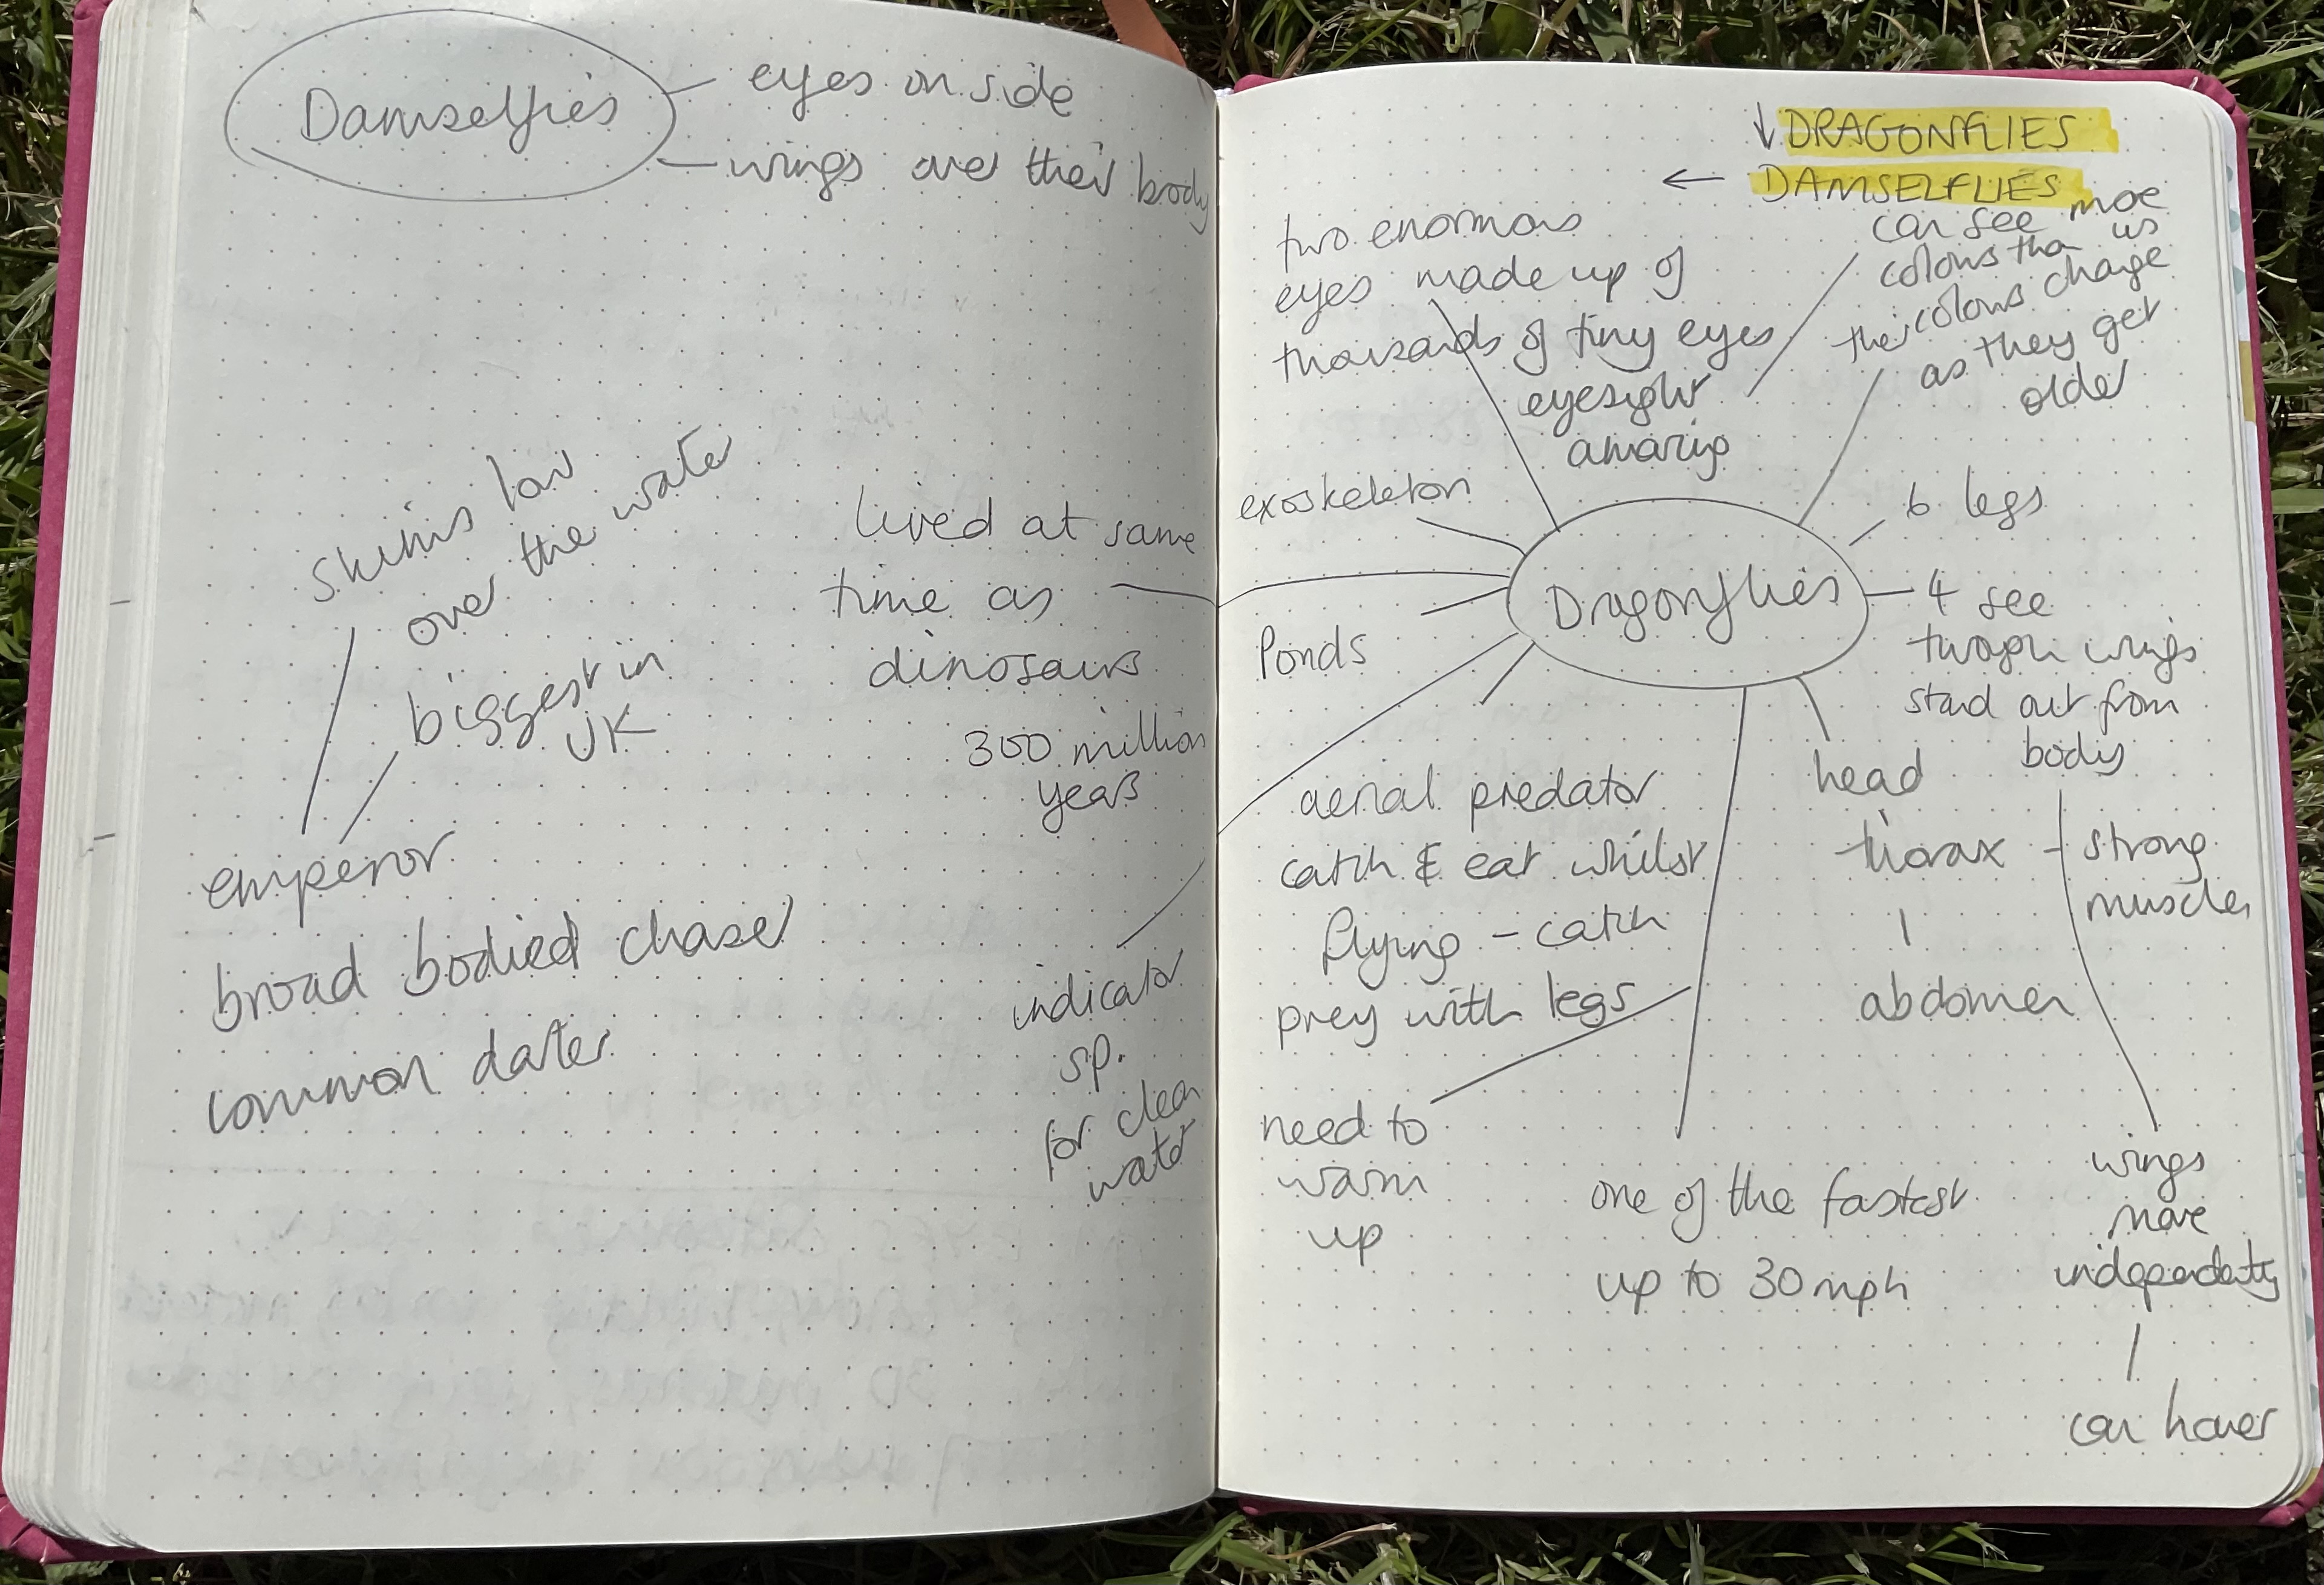 Damselflies
eyes on side
wings over their body
skims low
over the water
biggest in
UK
emperor
broad bodied chaser
common darter
lived at same
time as
dinosaurs
300 million
years
indicator
sp.
for clean
water
↓ DRAGONFLIES
← DAMSELFLIES
two enormous
eyes made up of
thousands of tiny eyes
eyesight
amazing
can see more
colours than us
their colours change
as they get
older
exoskeleton
Ponds
Dragonflies
6 legs
4 see
through wings
stand out from
body
aerial predator
catch & eat whilst
flying - catch
prey with legs
head
thorax - strong
muscles
abdomen
need to
warm
up
one of the fastest
up to 30mph
wings
move
independently
can hover